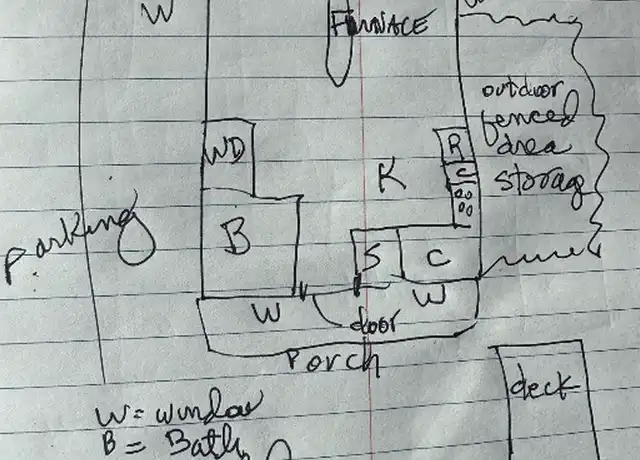 W
FURNACE
outdoor
fenced
area
storag
WD
R
C
K
parking
B
S
C
W
W
door
Porch
deck
W = window
B = Bath